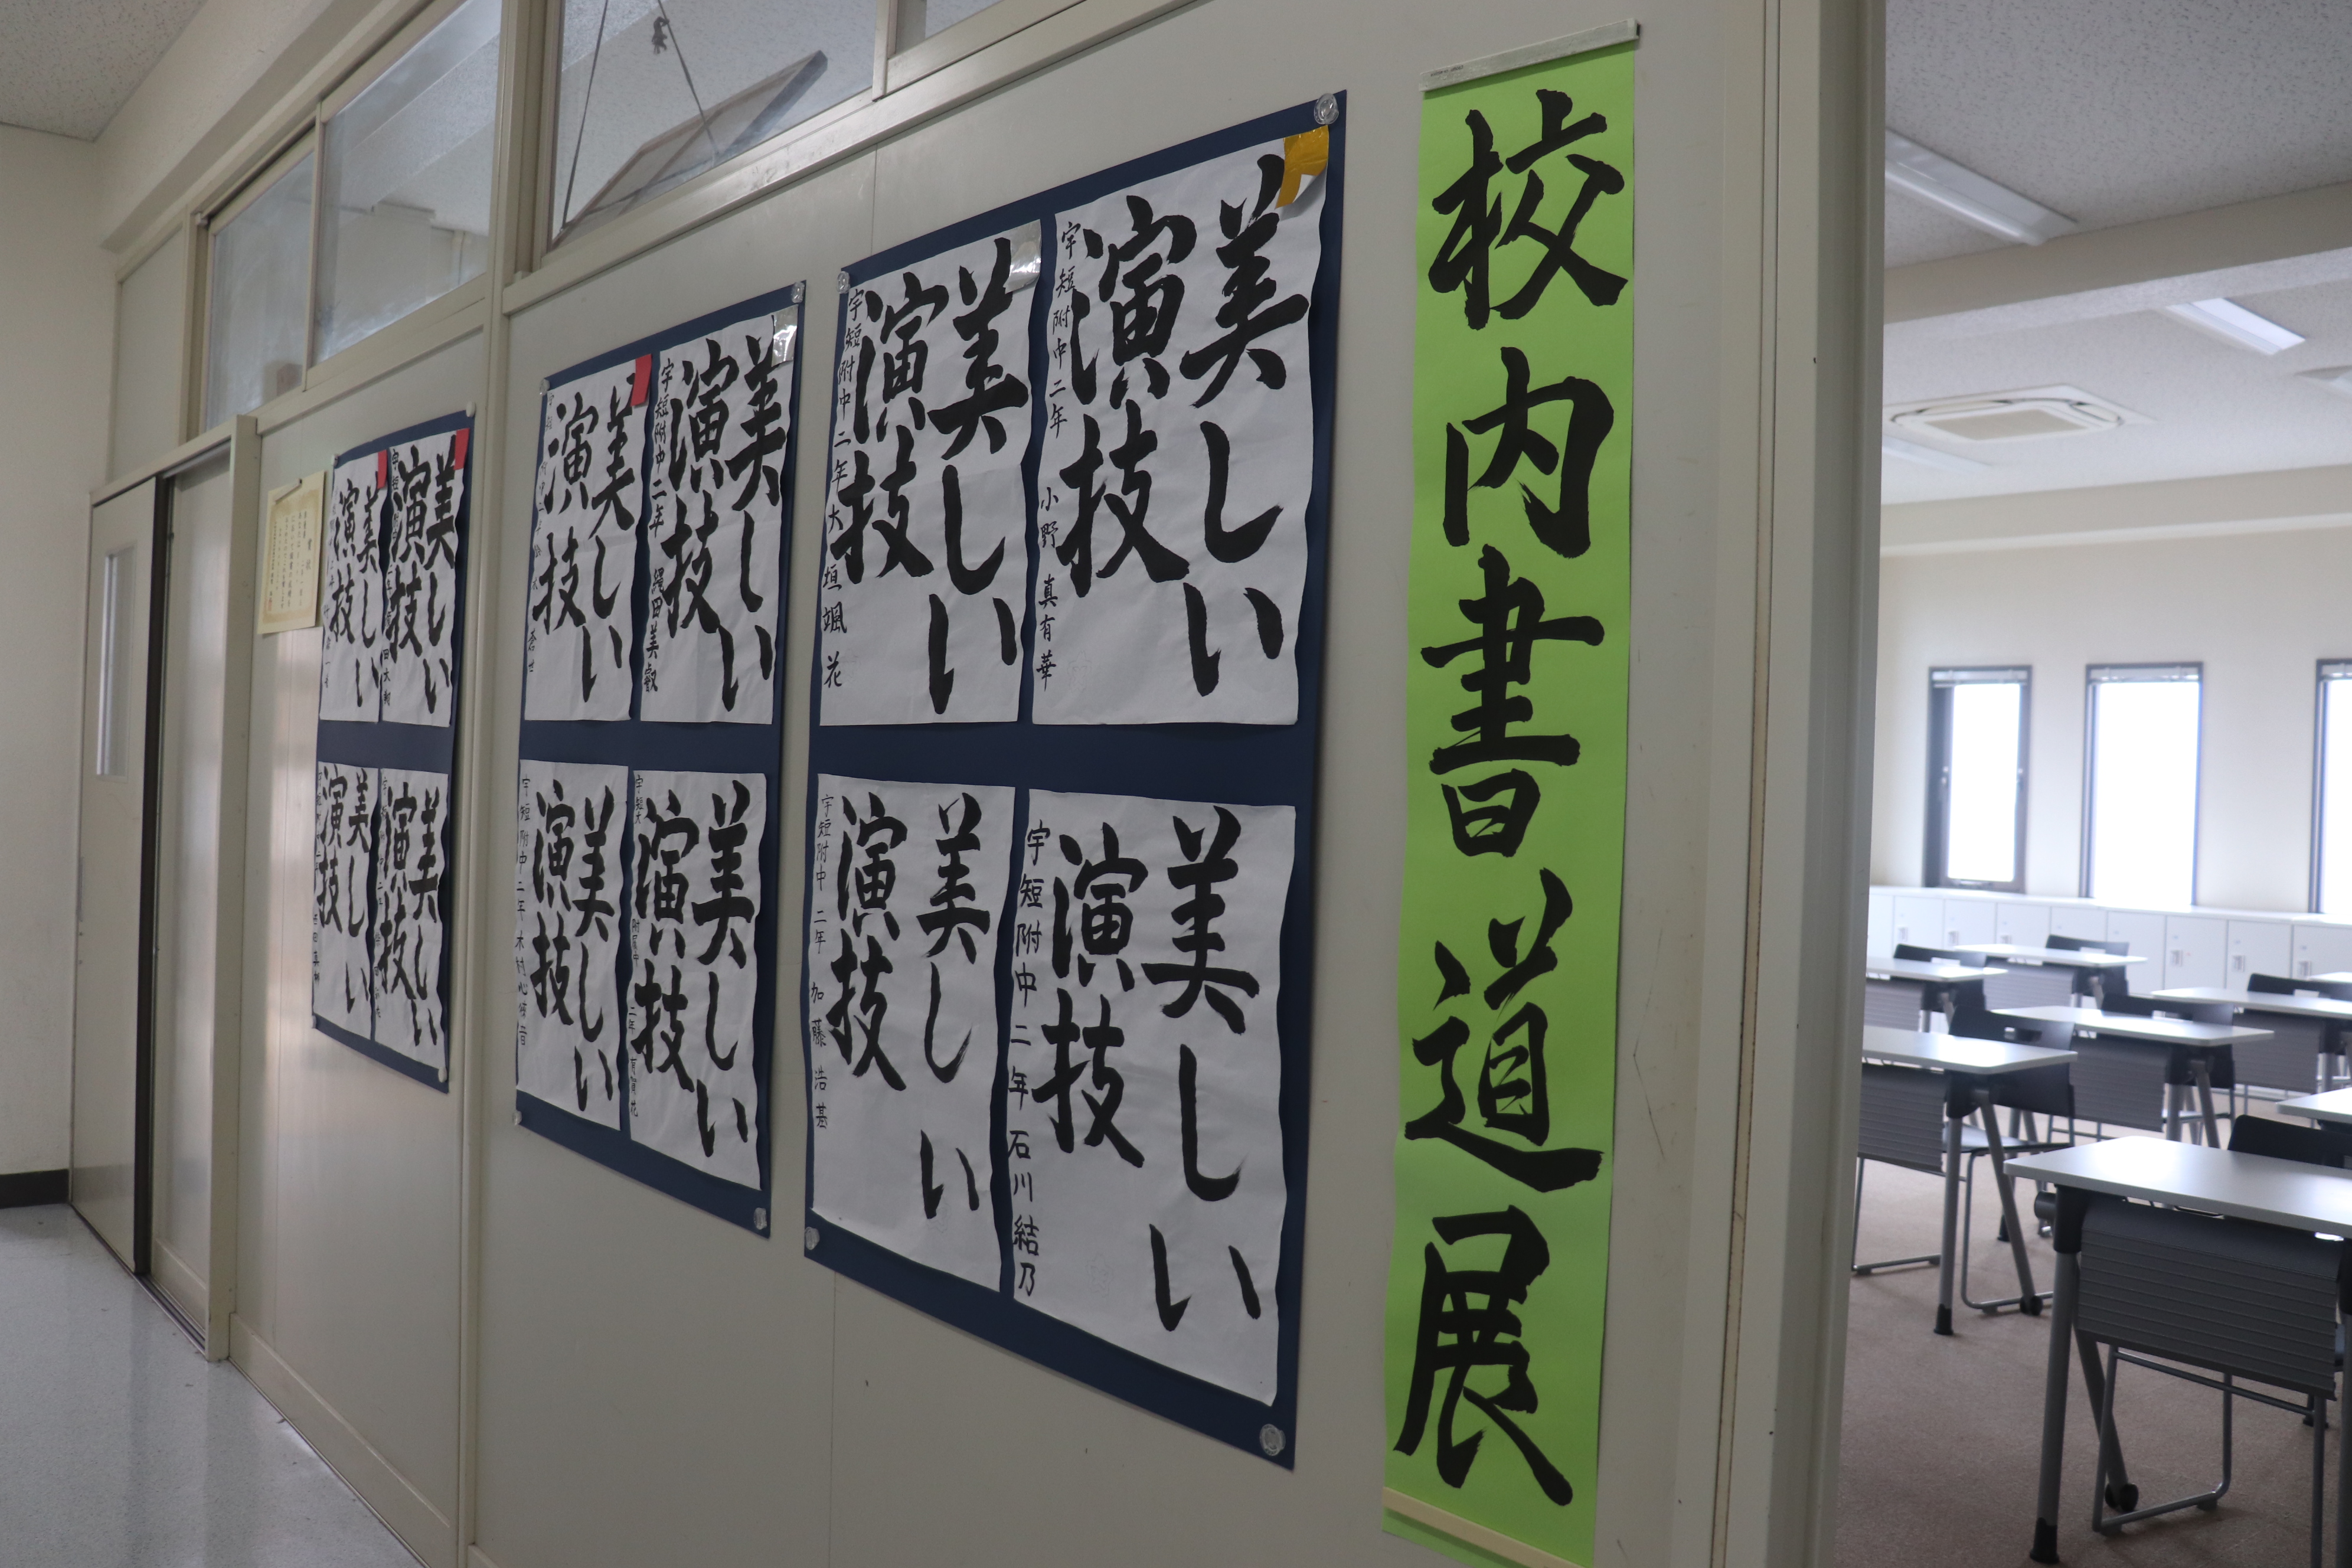 校内書道展
美しい
演技
宇短附中二年 小野 真有華
美しい
演技
宇短附中二年 大垣 颯花
美しい
演技
宇短附中二年 石川 結乃
美しい
演技
宇短附中 二年 加藤 浩基
美しい
演技
宇短附中二年 縄田美叡
美しい
演技
蒼世
美しい
演技
宇短大附属中 二年 有賀花
美しい
演技
宇短附中二年 木村心
美しい
演技
美しい
演技
美しい
演技
美しい
演技